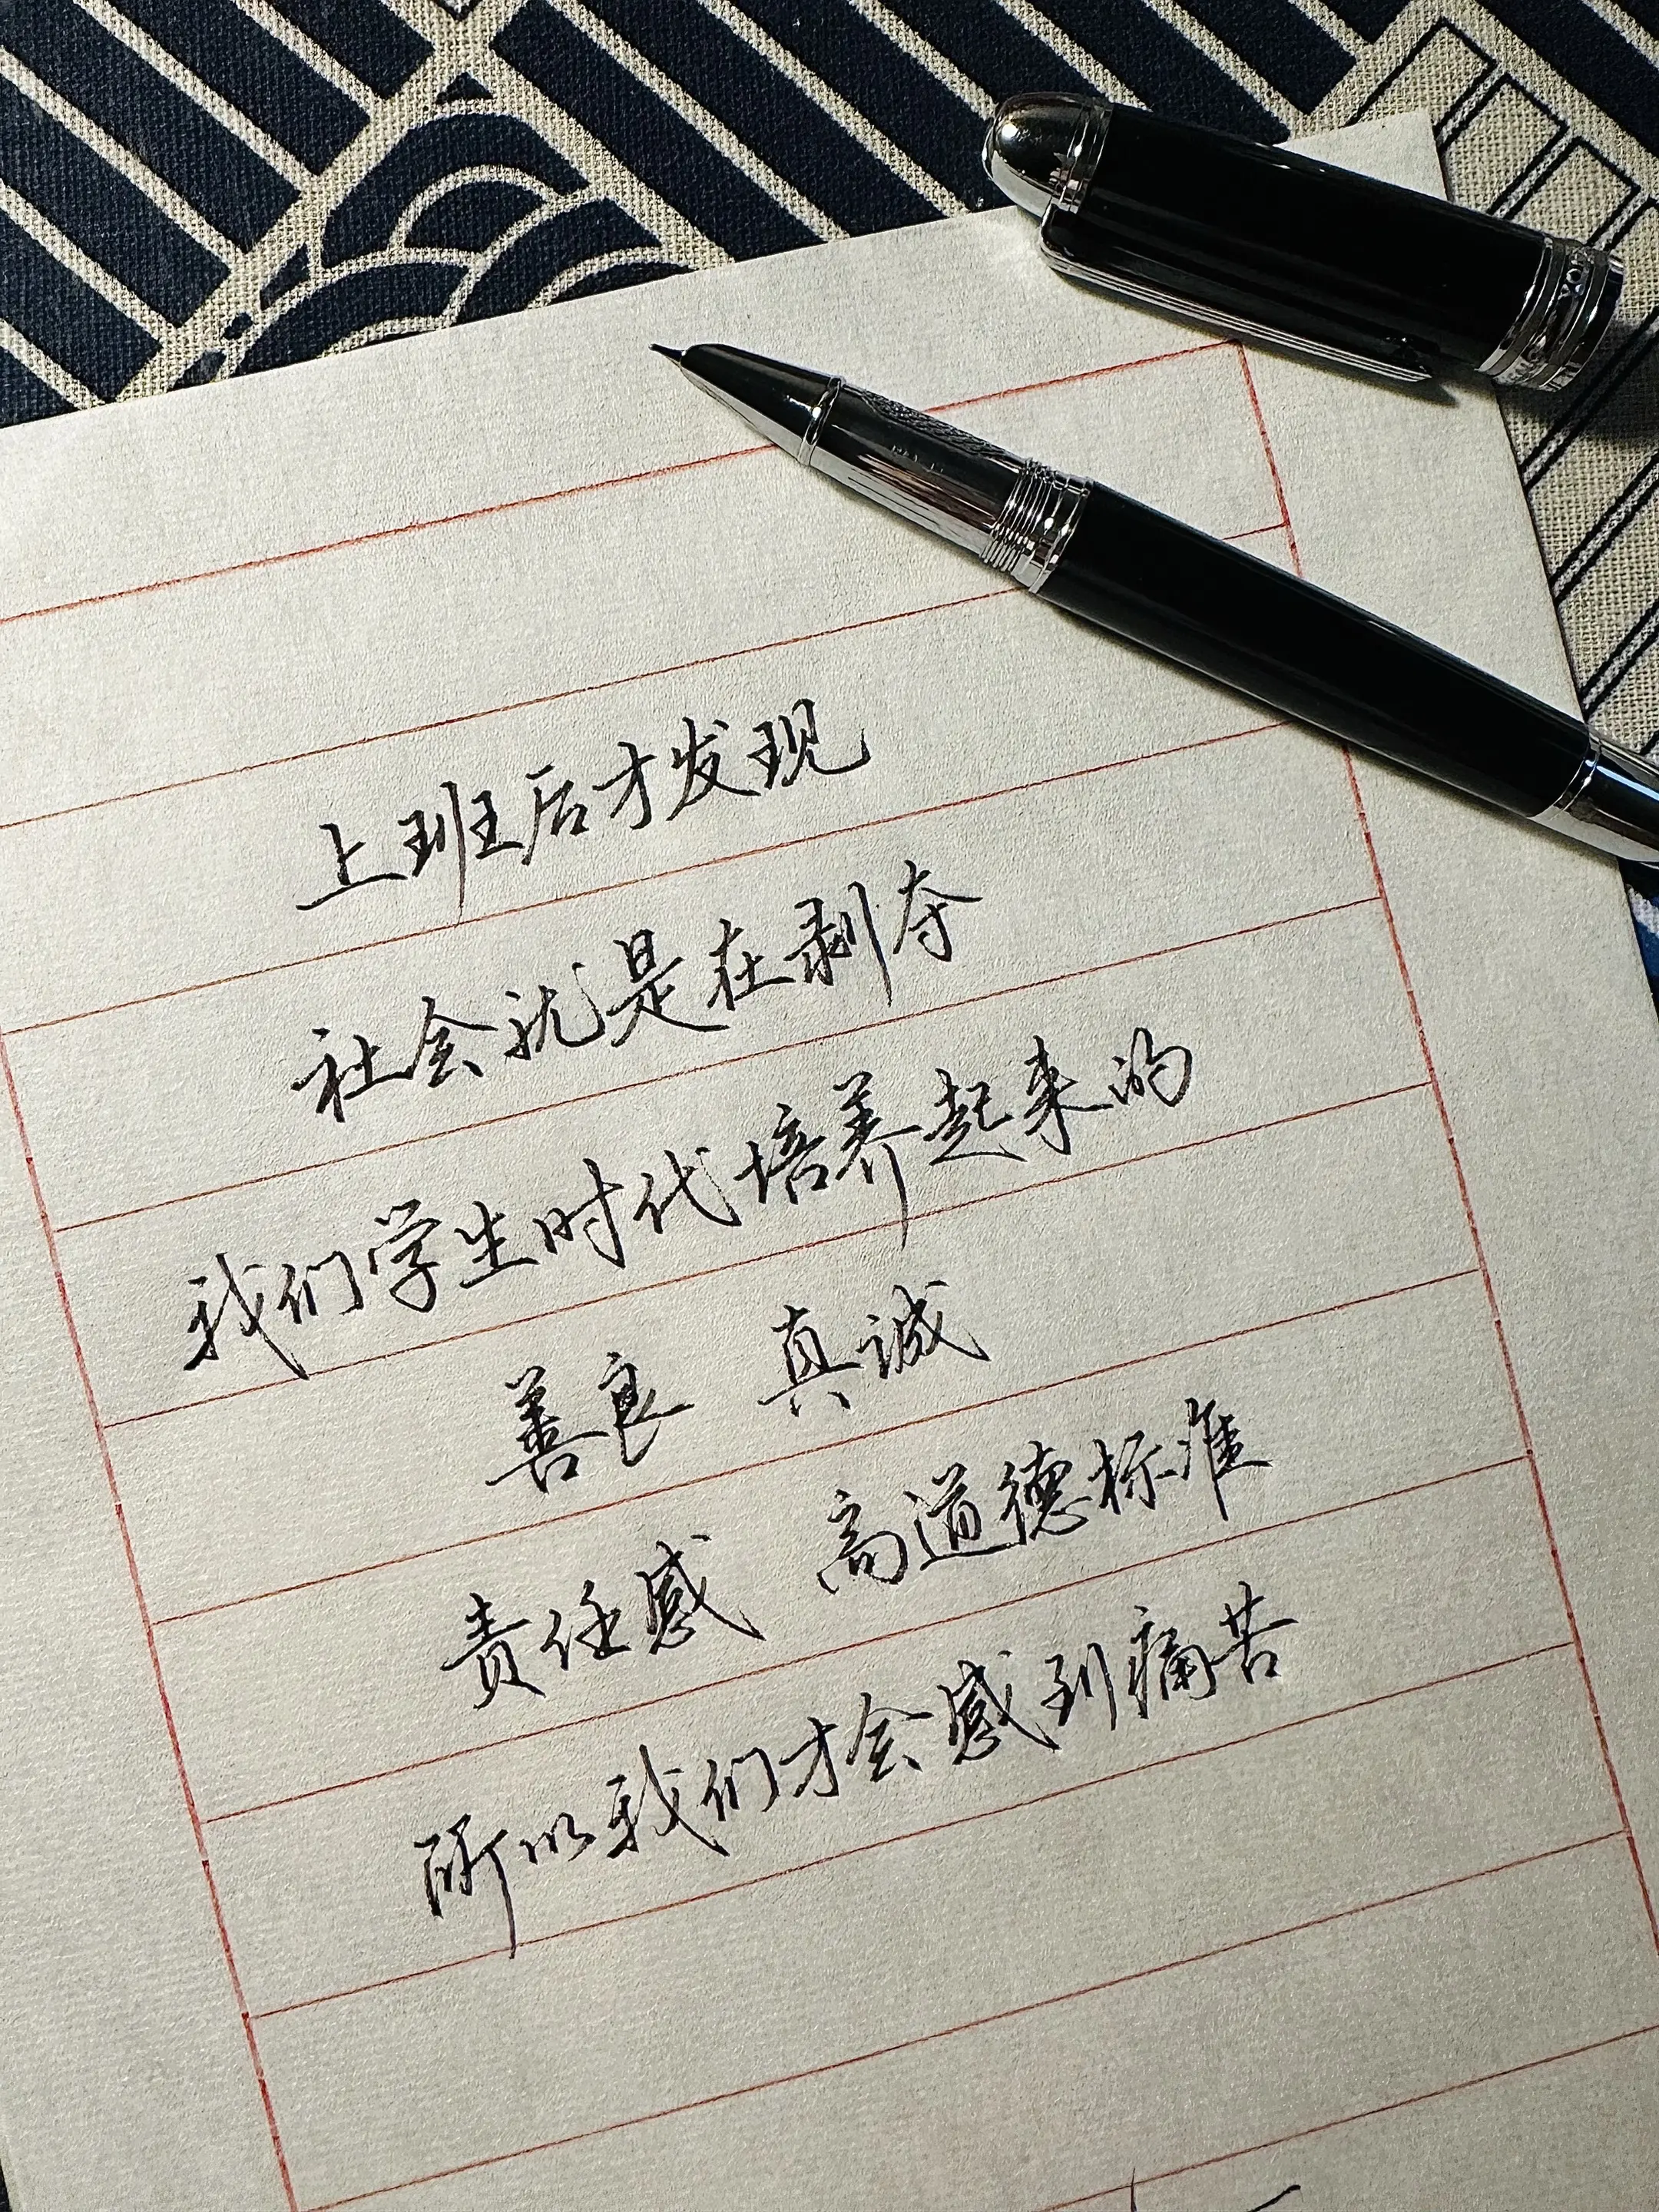 上班后才发现
社会就是在剥夺
我们学生时代培养起来的
善良 真诚
责任感 高道德标准
所以我们才会感到痛苦